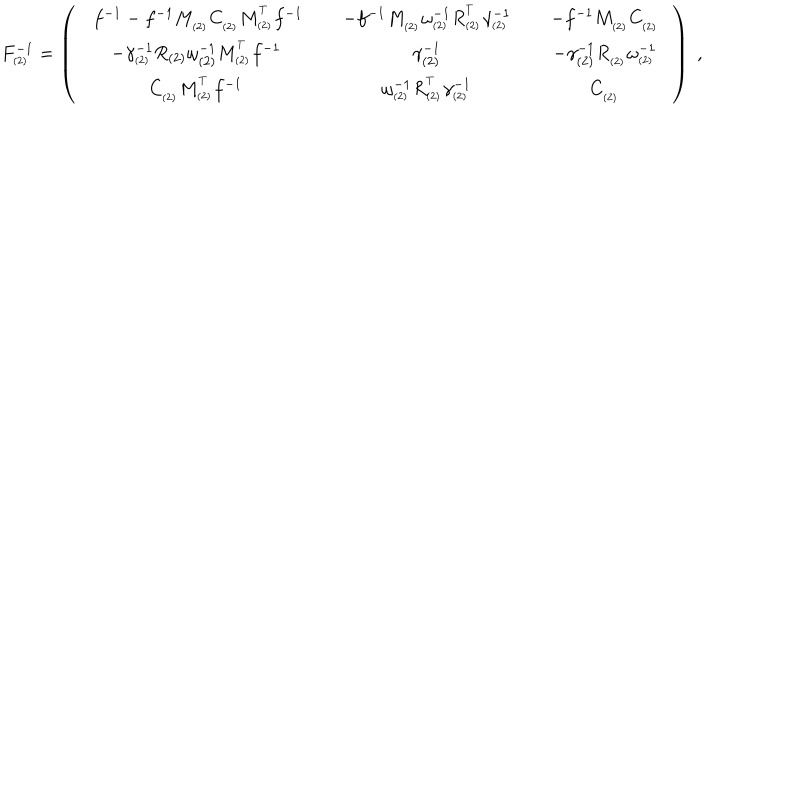 F_{(2)}^{-1} = \left( \begin{array}{ccc} f^{-1} - f^{-1} M_{(2)} C_{(2)} M_{(2)}^{T} f^{-1} & -f^{-1} M_{(2)} \omega_{(2)}^{-1} R_{(2)}^{T} \gamma_{(2)}^{-1} & -f^{-1} M_{(2)} C_{(2)} \\
-\gamma_{(2)}^{-1} R_{(2)} \omega_{(2)}^{-1} M_{(2)}^{T} f^{-1} & \gamma_{(2)}^{-1} & -\gamma_{(2)}^{-1} R_{(2)} \omega_{(2)}^{-1} \\
C_{(2)} M_{(2)}^{T} f^{-1} & \omega_{(2)}^{-1} R_{(2)}^{T} \gamma_{(2)}^{-1} & C_{(2)} \end{array} \right) \, ,